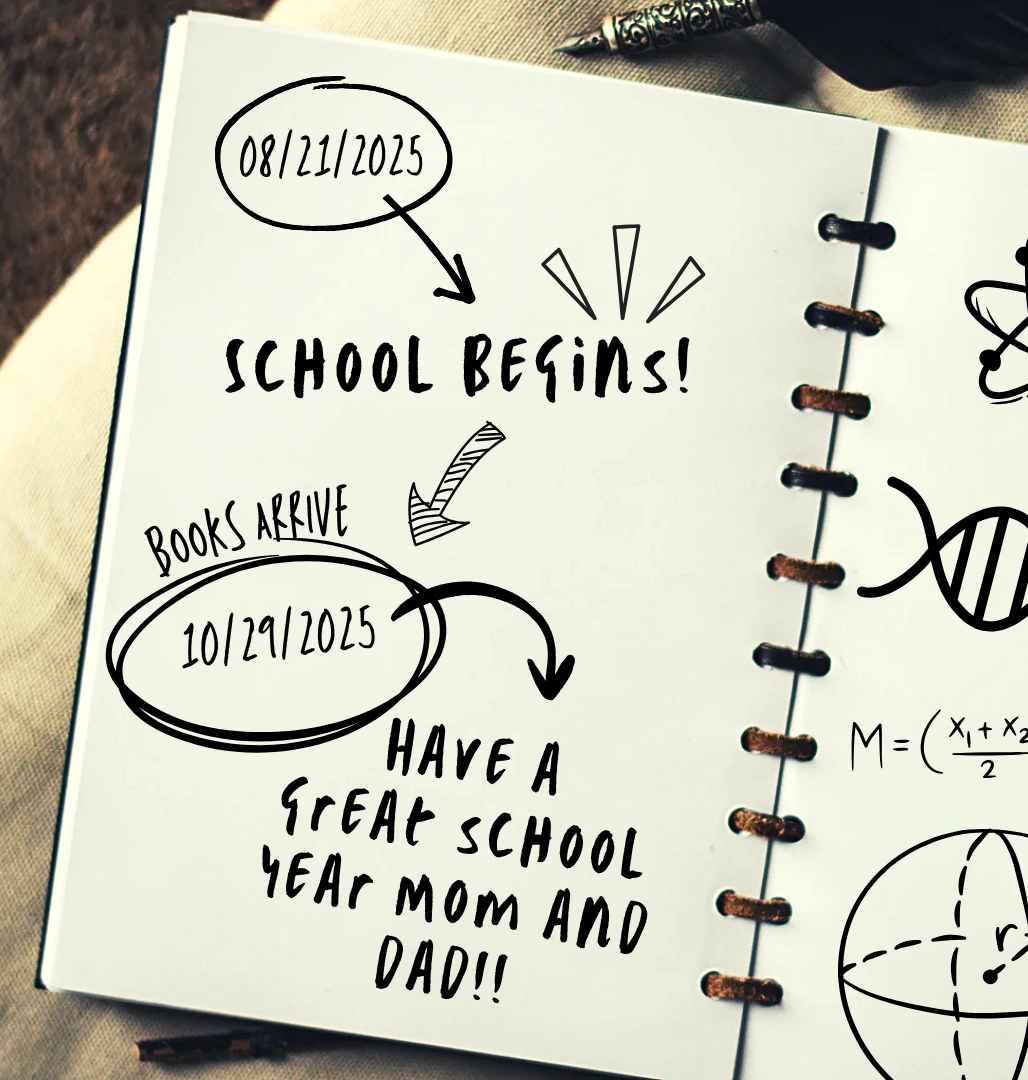 08/21/2025
SCHOOL BEGINS!
BOOKS ARRIVE
10/29/2025
HAVE A
GREAT SCHOOL
YEAR MOM AND
DAD!!
M = ( x₁ + x₂
2
r